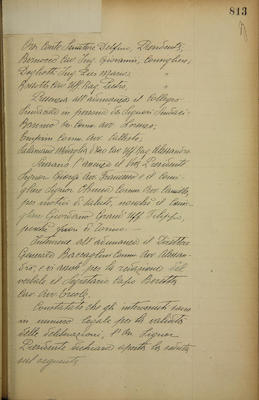 813
On. Conte Senatore Delfino, Presidente,
Bernocco Cav. Ing. Giovanni, Consigliere,
Ing. "
Cav. Uff. Rag. Pietro, "
Presenzia all'adunanza il Collegio
Sindacale in persona dei Signori Sindaci
Comm. Avv. Lorenzo,
Comm. Avv.
Cav. Uff. Rag. Alessandro
l'assenza il Vice Presidente
Signor Giorgi Avv. Francesco e il Consi-
gliere Signor Comm. Avv. Camillo,
per motivi di salute, nonché il Consi-
gliere Giordano Grand Uff. Filippo,
perché fuori Torino.
Interviene all'adunanza il Direttore
Generale Comm. Avv. Alessan-
dro, e vi assiste per la redazione del
verbale il Segretario Capo
Cav. Avv. Ercole.
Constatato che gli intervenuti sono
in numero legale per la validità
delle deliberazioni, l'On. Signor
Presidente dichiara aperta la seduta
sul seguente